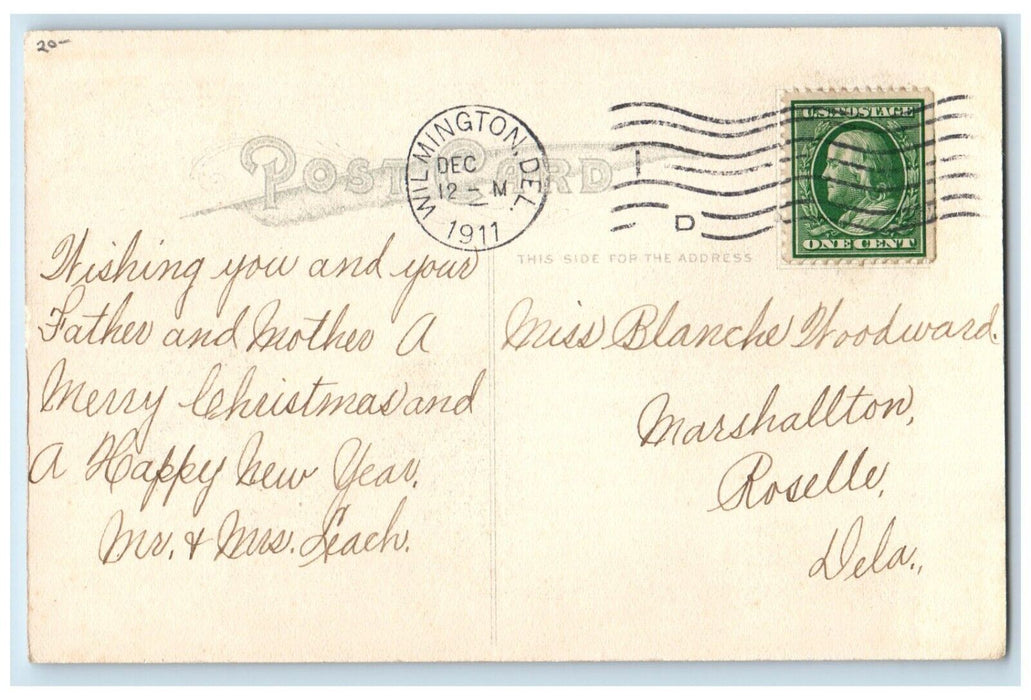 20-
POST CARD
WILMINGTON, DEL.
DEC
12 - M
1911
1
D
U.S. POSTAGE
ONE CENT
THIS SIDE FOR THE ADDRESS
Wishing you and your
Father and Mother A
Merry Christmas and
A Happy New Year.
Mr. & Mrs. Leach.
Miss Blanche Woodward.
Marshallton,
Roselle,
Dela.,